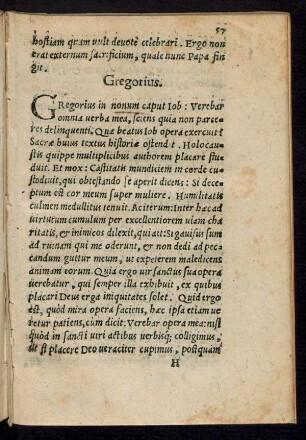 57
hostiam quam vult devotè celebrari. Ergo non
erat externum sacrificium, quale nunc Papa fin
git.
Gregorius.
GRegorius in nonum caput Iob: Verebar
omnia verba mea, sciens quia non parce-
res delinquenti. Qua beatus Iob opera exercuit?
Sacræ huius textus historiæ ostendit. Holocau-
stis quippe multiplicibus authorem placare stu-
duit. Et mox: Castitatis mundiciem in corde cu-
stoduit, qui obtestando se aperit dicens: Si dece-
ptum est cor meum super muliere. Humilitatis
culmen medullitus tenuit. Ac iterum: Inter hæc ad
virtutum cumulum per excellentiorem viam cha-
ritatis, & inimicos dilexit, qui ait: Si gavisus sum
ad ruinam qui me oderunt, & non dedi ad pec-
candum guttur meum, ut expeterem maledicens
animam eorum. Quid ergo vir sanctus sua opera
verebatur, qui semper illa exhibuit, ex quibus
placari Deus erga iniquitates solet. Quid ergo
est, quòd mira opera faciens, hæc ipsa etiam ve-
retur patiens, cum dicit: Verebar opera mea: nisi
quòd in sancti viri actibus verbisq; colligimus,
ut si placere Deo veraciter cupimus, postquam
H